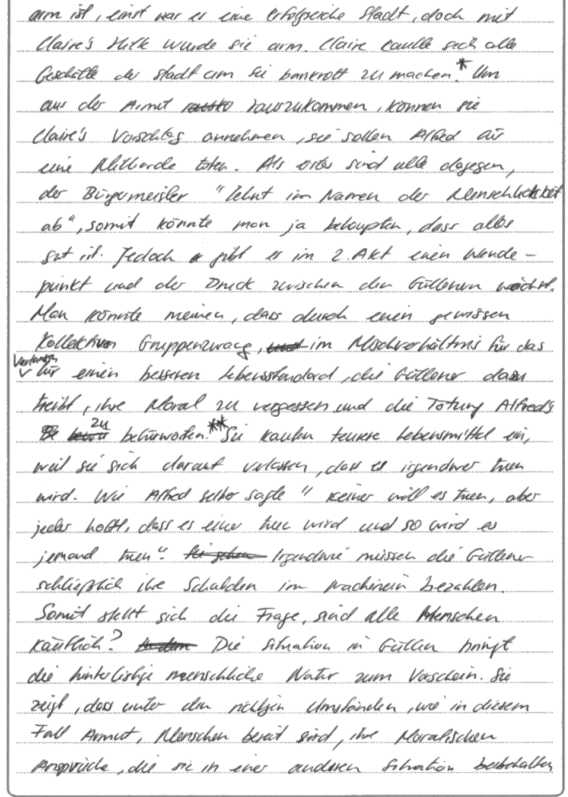 arm ist, einst war es eine erfolgreiche Stadt, doch mit
Claire's Hilfe wurde sie arm. Claire kaufte sich alle
Geschäfte der Stadt um sie bankrott zu machen.* Um
aus der Armut rauszukommen, können sie
Claire's Vorschlag annehmen, sie sollen Alfred für
eine Milliarde töten. Als erstes sind alle dagegen,
der Bürgermeister "lehnt im Namen der Menschlichkeit
ab", somit könnte man ja behaupten, dass alles
gut ist. Jedoch gibt es im 2. Akt einen Wende-
punkt und der Druck zwischen den Güllenern wächst.
Man könnte meinen, dass durch einen gewissen
Gruppenzwang, im Mischverhältnis für das
Verlangen
für einen besseren Lebensstandard, die Güllener dazu
treibt, ihre Moral zu vergessen und die Tötung Alfred's
zu befürworten.** Sie kaufen teurere Lebensmittel ein,
weil sie sich darauf verlassen, dass es irgendwer tuen
wird. Wie Alfred selber sagte "Keiner will es tuen, aber
jeder hofft, dass es einer tuen wird und so wird es
jemand tuen". Irgendwie müssen die Güllener
schließlich ihre Schulden im nachinein bezahlen.
Somit stellt sich die Frage, sind alle Menschen
käuflich? Die Situation in Güllen bringt
die hinterlistige menschliche Natur zum Vorschein. Sie
zeigt, dass unter den richtigen Umständen, wie in diesem
Fall Armut, Menschen bereit sind, ihre Moralischen
Ansprüche, die sie in einer anderen Situation beibehalten